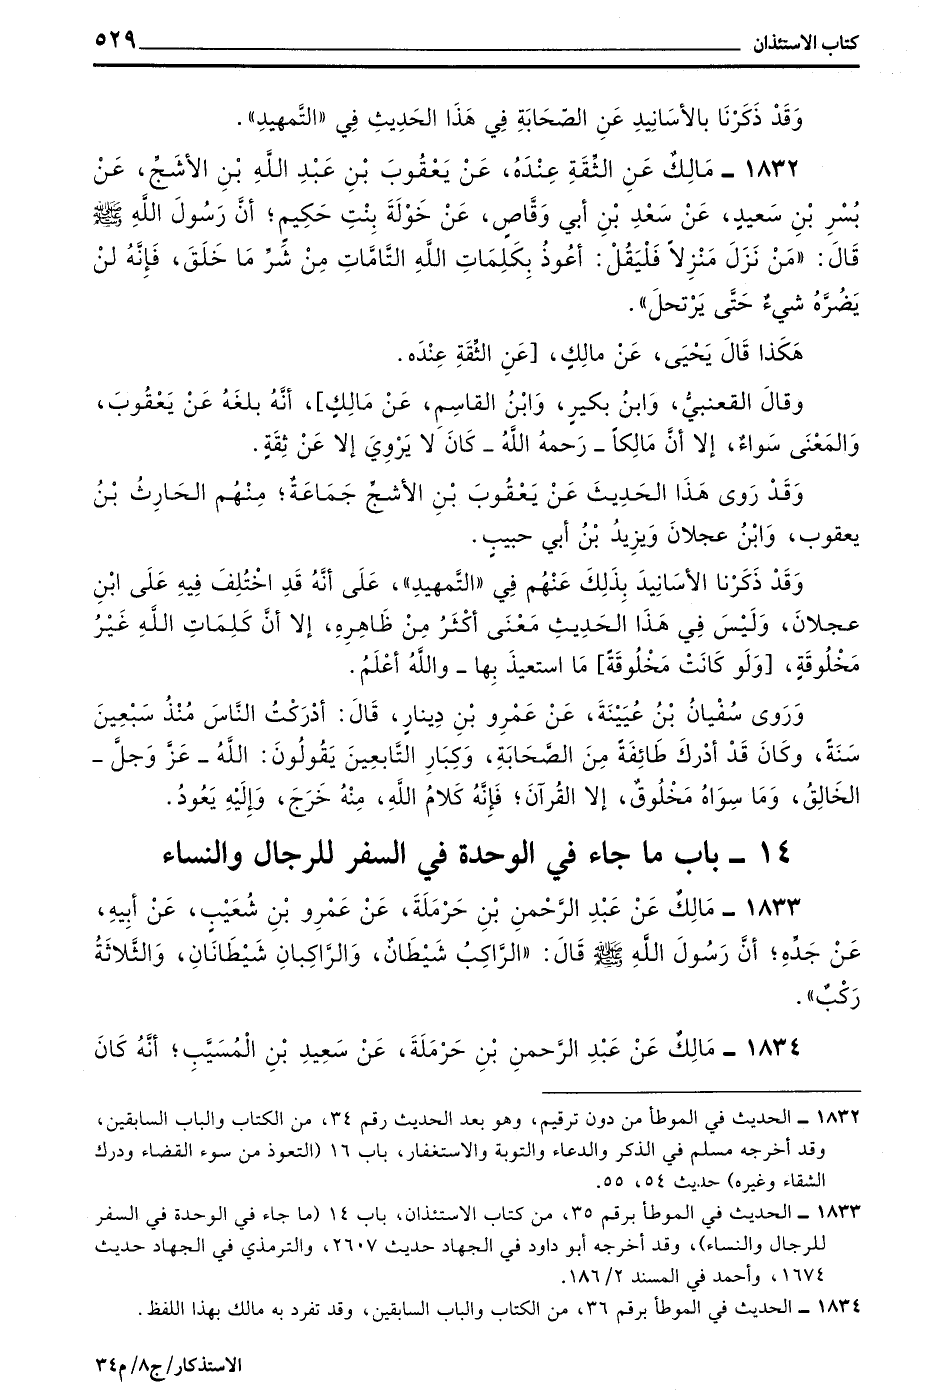 كتاب الاستئذان ٥٢٩
وَقَدْ ذَكَرْنَا بالأسَانِيدِ عَنِ الصّحَابَةِ فِي هَذَا الحَدِيثِ فِي «التَّمهِيدِ».
١٨٣٢ ـ مَالِكٌ عَنِ الثِّقَةِ عِنْدَهُ، عَنْ يَعْقُوبَ بْنِ عَبْدِ اللَّهِ بْنِ الأشَجِّ، عَنْ
بُسْرِ بْنِ سَعيدٍ، عَنْ سَعْدِ بْنِ أبي وَقَّاصٍ، عَنْ خَوْلَةَ بِنْتِ حَكِيمٍ؛ أنَّ رَسُولَ اللَّهِ ﷺ
قَالَ: «مَنْ نَزَلَ مَنْزِلاً فَلْيَقُلْ: أعُوذُ بِكَلِمَاتِ اللَّهِ التَّامَّاتِ مِنْ شَّرِّ مَا خَلَقَ، فَإنَّهُ لَنْ
يَضُرَّهُ شيءٌ حَتَّى يَرْتحلَ».
هَكَذا قَالَ يَحْيَى، عَنْ مالِكٍ، [عَنِ الثِّقَةِ عِنْدَه.
وقالَ القعنبيُّ، وَابنُ بكيرٍ، وَابْنُ القاسِمِ، عَنْ مَالِكٍ]، أنَّهُ بلغَهُ عَنْ يَعْقُوبَ،
وَالمَعْنَى سَواءٌ، إلا أنَّ مَالِكاً ـ رَحمهُ اللَّهُ ـ كَانَ لا يَرْوِيَ إلا عَنْ ثِقَةٍ.
وَقَدْ رَوى هَذَا الحَديثَ عَنْ يَعْقُوبَ بْنِ الأشجِّ جَمَاعَةٌ؛ مِنْهُم الحَارِثُ بْنُ
يعقوب، وَابْنُ عجلانَ وَيزِيدُ بْنُ أبي حبيبٍ.
وَقَدْ ذَكَرْنا الأسَانِيدَ بِذَلِكَ عَنْهُم فِي «التَّمهِيدِ»، عَلَى أنَّهُ قَدِ اخْتُلِفَ فِيهِ عَلَى ابْنِ
عجلانَ، وَلَيْسَ فِي هَذَا الحَديثِ مَعْنَى أكْثَرُ مِنْ ظَاهِرِهِ، إلا أنَّ كَلِمَاتِ اللَّهِ غَيْرُ
مَخْلُوقَةٍ، [وَلَو كَانَتْ مَخْلُوقَةً] مَا استعيذَ بِها ـ واللَّهُ أعْلَمُ.
وَرَوى سُفْيانُ بْنُ عُيَيْنَةَ، عَنْ عَمْرِو بْنِ دِينارٍ، قَالَ: أدْرَكْتُ النَّاسَ مُنْذُ سَبْعِينَ
سَنَةً، وكَانَ قَدْ أدْركَ طَائِفَةً مِنَ الصَّحَابَةِ، وَكِبَارِ التَّابعِينَ يَقُولُونَ: اللَّهُ ـ عَزَّ وَجلَّ ـ
الخَالِقُ، وَمَا سِوَاهُ مَخْلُوقٌ، إلا القُرآنَ؛ فَإنَّهُ كَلامُ اللَّهِ، مِنْهُ خَرَجَ، وَإلَيْهِ يَعُودُ.
١٤ ـ باب ما جاء في الوحدة في السفر للرجال والنساء
١٨٣٣ ـ مَالِكٌ عَنْ عَبْدِ الرَّحْمنِ بْنِ حَرْمَلَةَ، عَنْ عَمْرِو بْنِ شُعَيْبٍ، عَنْ أبِيهِ،
عَنْ جَدِّهِ؛ أنَّ رَسُولَ اللَّهِ ﷺ قَالَ: «الرَّاكِبُ شَيْطَانٌ، وَالرَّاكِبانِ شَيْطَانَانِ، وَالثَّلاثَةُ
رَكْبٌ».
١٨٣٤ ـ مَالِكٌ عَنْ عَبْدِ الرَّحمنِ بْنِ حَرْمَلَةَ، عَنْ سَعِيدِ بْنِ الْمُسَيَّبِ؛ أنَّهُ كَانَ
١٨٣٢ ـ الحديث في الموطأ من دون ترقيم، وهو بعد الحديث رقم ٣٤، من الكتاب والباب السابقين،
وقد أخرجه مسلم في الذكر والدعاء والتوبة والاستغفار، باب ١٦ (التعوذ من سوء القضاء ودرك
الشقاء وغيره) حديث ٥٤، ٥٥.
١٨٣٣ ـ الحديث في الموطأ برقم ٣٥، من كتاب الاستئذان، باب ١٤ (ما جاء في الوحدة في السفر
للرجال والنساء)، وقد أخرجه أبو داود في الجهاد حديث ٢٦٠٧، والترمذي في الجهاد حديث
١٦٧٤، وأحمد في المسند ٢/ ١٨٦.
١٨٣٤ ـ الحديث في الموطأ برقم ٣٦، من الكتاب والباب السابقين، وقد تفرد به مالك بهذا اللفظ.
الاستذكار/ ج٨/ م٣٤